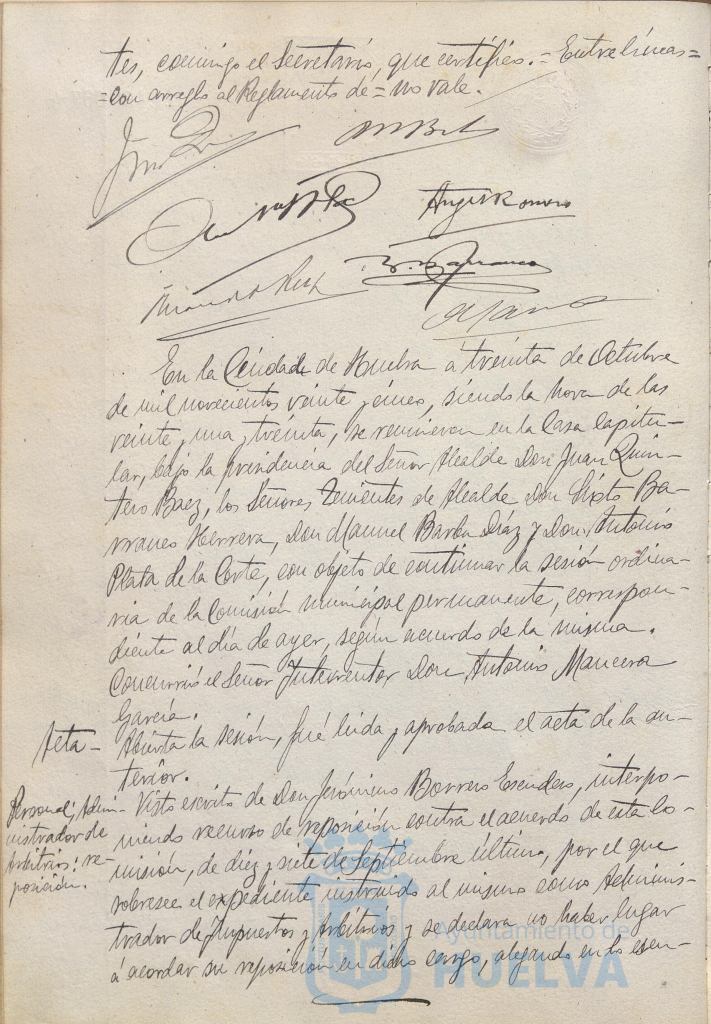 tes, conmigo el Secretario, que certifico. = Entre líneas =
= con arreglo al Reglamento de = no vale.
Angel Romero
En la Ciudad de Huelva a treinta de Octubre
de mil novecientos veinte y cinco, siendo la hora de las
veinte y una y treinta, se reunieron en la Casa Capitu-
lar, bajo la presidencia del Señor Alcalde Don Juan Quin-
tero Baez, los Señores Tenientes de Alcalde Don Sixto Ba-
rranco Herrera, Don Manuel Barba Díaz y Don Antonio
Plata de la Corte, con objeto de continuar la sesión ordina-
ria de la Comisión municipal permanente, correspon-
diente al día de ayer, según acuerdo de la misma.
Concurrió el Señor Interventor Don Antonio Mancera
García.
Acta- Abierta la sesión, fué leida y aprobada el acta de la an-
terior.
Personal; Admi-
nistrador de
Arbitrios: re-
posición.
Visto escrito de Don Jerónimo Borrero Escudero, interpo-
niendo recurso de reposición contra el acuerdo de esta Co-
misión, de diez y siete de Septiembre último, por el que
sobresee el expediente instruido al mismo como Adminis-
trador de Impuestos y Arbitrios y se declara no haber lugar
á acordar su reposición en dicho cargo, alegando en lo esen-
Ayuntamiento de
HUELVA